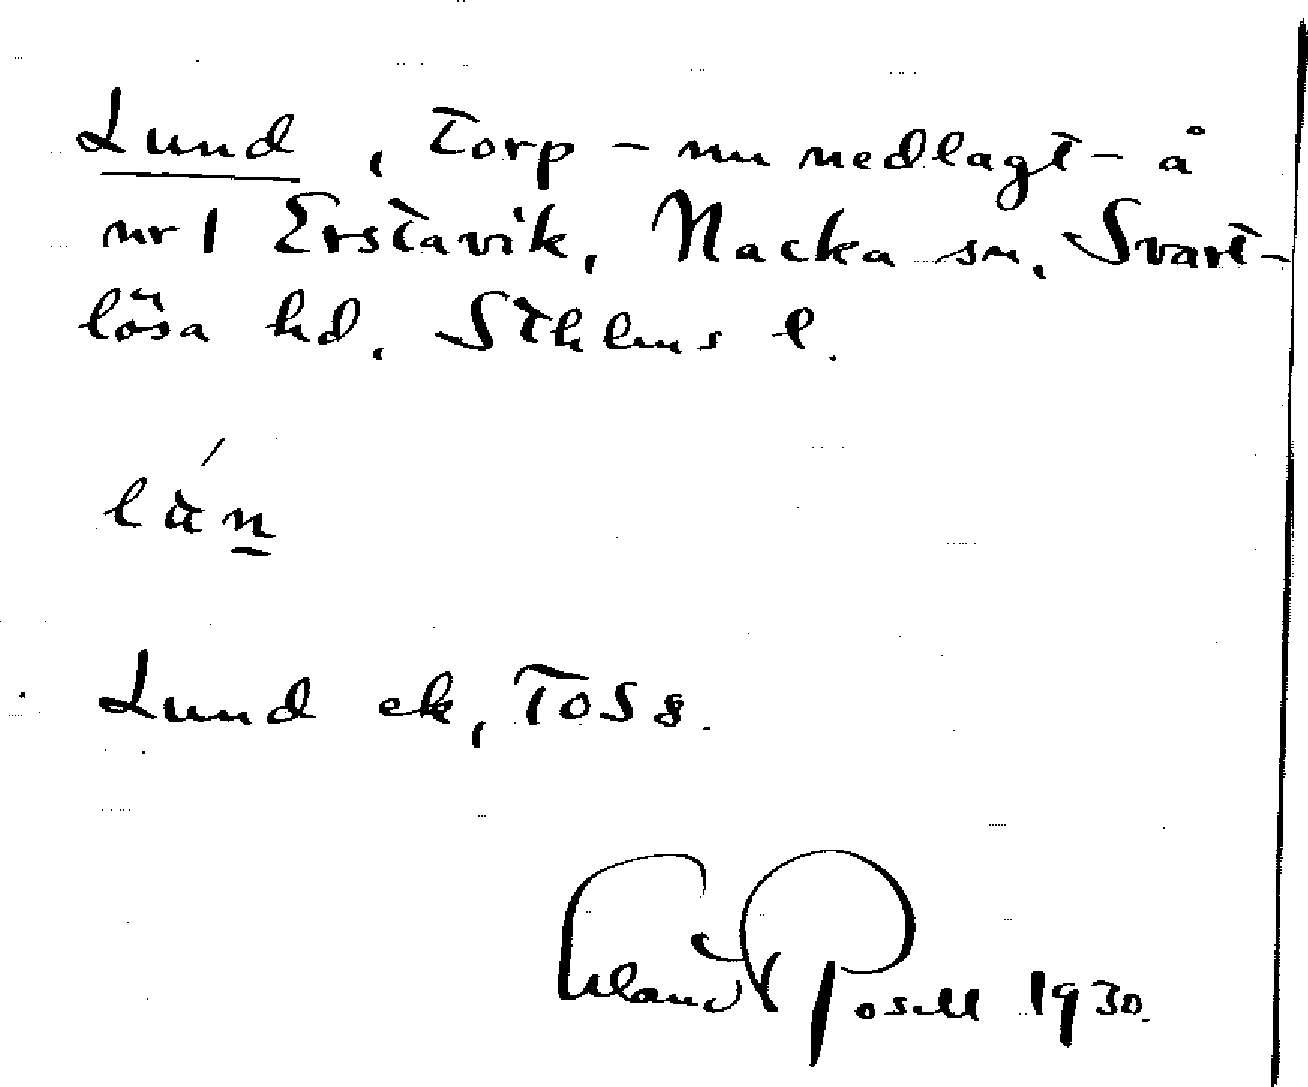 Lund, Torp - nu nedlagt - å
nr 1 Erstavik, Nacka sn, Svart-
lösa hd, Sthlms l.
lun
Lund ek, TOS 8.
Erland Rosell 1930.